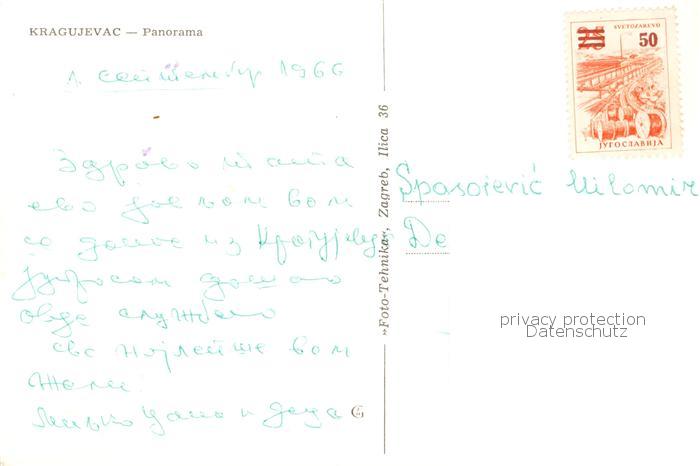 KRAGUJEVAC — Panorama
1. септембар 1966
Здраво
ево вам
се из Крагујевца
јутрос дошао
овде службено
све најлепше вам
жели
и деца
»Foto-Tehnika«, Zagreb, Ilica 36
SVETOZAREVO
25 50
ЈУГОСЛАВИЈА
Spasojević Milomir
De
privacy protection
Datenschutz